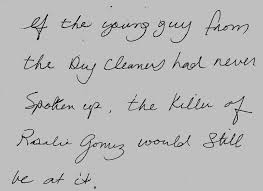 If the young guy from
the Dry Cleaners had never
Spoken up, the Killer of
Rosalie Gomez would Still
be at it.